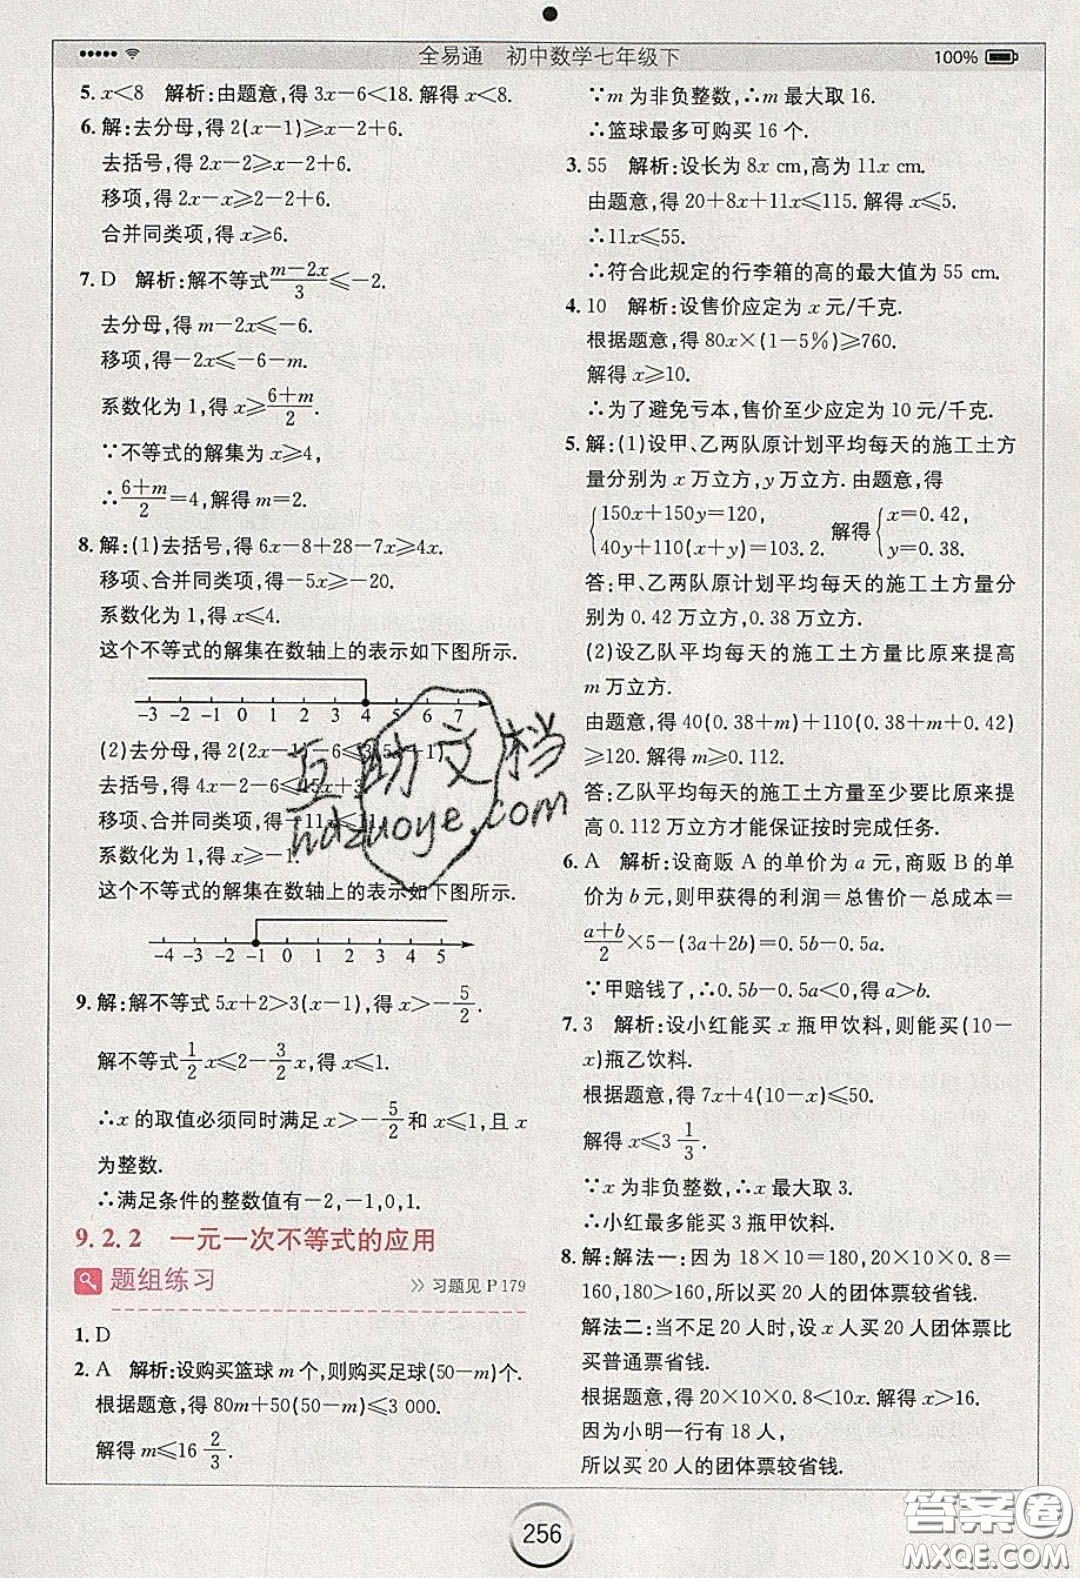 全易通 初中数学七年级下
100%
5. x<8 解析:由题意,得 3x-6<18. 解得 x<8.
6. 解:去分母,得 2(x-1)≥x-2+6.
去括号,得 2x-2≥x-2+6.
移项,得 2x-x≥2-2+6.
合并同类项,得 x≥6.
7. D 解析:解不等式(m-2x)/3≤-2.
去分母,得 m-2x≤-6.
移项,得-2x≤-6-m.
系数化为 1,得 x≥(6+m)/2.
∵不等式的解集为 x≥4,
∴(6+m)/2=4,解得 m=2.
8. 解:(1)去括号,得 6x-8+28-7x≥4x.
移项、合并同类项,得-5x≥-20.
系数化为 1,得 x≤4.
这个不等式的解集在数轴上的表示如下图所示.
-3 -2 -1 0 1 2 3 4 5 6 7
(2)去分母,得 2(2x-1)-6≤3(5x-1)
去括号,得 4x-2-6≤15x+3
移项、合并同类项,得-11x≤1
系数化为 1,得 x≥-1.
这个不等式的解集在数轴上的表示如下图所示.
-4 -3 -2 -1 0 1 2 3 4 5
9. 解:解不等式 5x+2>3(x-1),得 x>-5/2.
解不等式1/2 x≤2-3/2 x,得 x≤1.
∴x 的取值必须同时满足 x>-5/2和 x≤1,且 x
为整数.
∴满足条件的整数值有-2,-1,0,1.
9.2.2 一元一次不等式的应用
题组练习 》习题见 P 179
1. D
2. A 解析:设购买篮球 m 个,则购买足球(50-m)个.
根据题意,得 80m+50(50-m)≤3 000.
解得 m≤16 2/3.
∵m 为非负整数,∴m 最大取 16.
∴篮球最多可购买 16 个.
3. 55 解析:设长为 8x cm,高为 11x cm.
由题意,得 20+8x+11x≤115. 解得 x≤5.
∴11x≤55.
∴符合此规定的行李箱的高的最大值为 55 cm.
4. 10 解析:设售价应定为 x 元/千克.
根据题意,得 80x×(1-5%)≥760.
解得 x≥10.
∴为了避免亏本,售价至少应定为 10 元/千克.
5. 解:(1)设甲、乙两队原计划平均每天的施工土方
量分别为 x 万立方,y 万立方. 由题意,得
{150x+150y=120, 解得{x=0.42,
40y+110(x+y)=103.2. y=0.38.
答:甲、乙两队原计划平均每天的施工土方量分
别为 0.42 万立方、0.38 万立方.
(2)设乙队平均每天的施工土方量比原来提高
m 万立方.
由题意,得 40(0.38+m)+110(0.38+m+0.42)
≥120. 解得 m≥0.112.
答:乙队平均每天的施工土方量至少要比原来提
高 0.112 万立方才能保证按时完成任务.
6. A 解析:设商贩 A 的单价为 a 元,商贩 B 的单
价为 b 元,则甲获得的利润=总售价-总成本=
(a+b)/2×5-(3a+2b)=0.5b-0.5a.
∵甲赔钱了,∴0.5b-0.5a<0,得 a>b.
7. 3 解析:设小红能买 x 瓶甲饮料,则能买(10-
x)瓶乙饮料.
根据题意,得 7x+4(10-x)≤50.
解得 x≤3 1/3.
∵x 为非负整数,∴x 最大取 3.
∴小红最多能买 3 瓶甲饮料.
8. 解:解法一:因为 18×10=180,20×10×0.8=
160,180>160,所以买 20 人的团体票较省钱.
解法二:当不足 20 人时,设 x 人买 20 人团体票比
买普通票省钱.
根据题意,得 20×10×0.8<10x. 解得 x>16.
因为小明一行有 18 人,
所以买 20 人的团体票较省钱.
256
互助文档
hdzuoye.com
答案圈
MXQE.COM